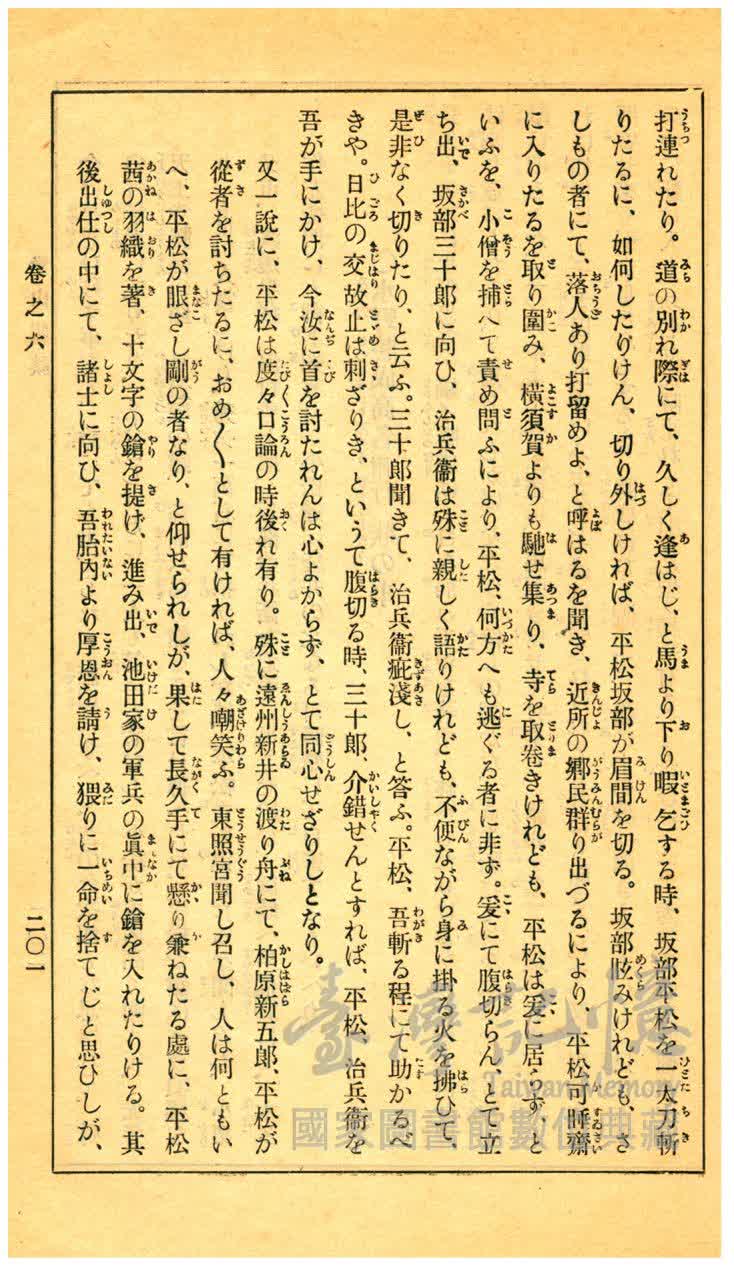 打連れたり。道の別れ際にて、久しく逢はじ、と馬より下り暇乞する時、坂部平松を一太刀斬
りたるに、如何したりけん、切り外しければ、平松坂部が眉間を切る。坂部眩みけれども、さ
しもの者にて、落人あり打留めよ、と呼はるを聞き、近所の鄕民群り出づるにより、平松可睡齋
に入りたるを取り圍み、橫須賀よりも馳せ集り、寺を取卷きけれども、平松は爰に居らず、と
いふを、小僧を捕へて責め問ふにより、平松、何方へも逃ぐる者に非ず。爰にて腹切らん、とて立
ち出、坂部三十郞に向ひ、治兵衞は殊に親しく語りけれども、不便ながら身に掛る火を拂ひて、
是非なく切りたり、と云ふ。三十郞聞きて、治兵衞疵淺し、と答ふ。平松、吾斬る程にて助かるべ
きや。日比の交故止は刺ざりき、というて腹切る時、三十郞、介錯せんとすれば、平松 治兵衞を
吾が手にかけ、今汝に首を討たれんは心よからず、とて同心せざりしとなり。
又一說に、平松は度々口論の時後れ有り。殊に遠州新井の渡り舟にて、柏原新五郞、平松が
從者を討ちたるに、おめ〱として有ければ、人々嘲笑ふ。東照宮聞し召し、人は何ともい
へ、平松が眼ざし剛の者なり、と仰せられしが、果して長久手にて懸り兼ねたる處に、平松
茜の羽織を著、十文字の鎗を提げ、進み出、池田家の軍兵の眞中に鎗を入れたりける。其
後出仕の中にて、諸士に向ひ、吾胎內より厚恩を請け、猥りに一命を捨てじと思ひしが、
卷之六
二〇一
臺灣記憶
Taiwan Memory
國家圖書館數位典藏